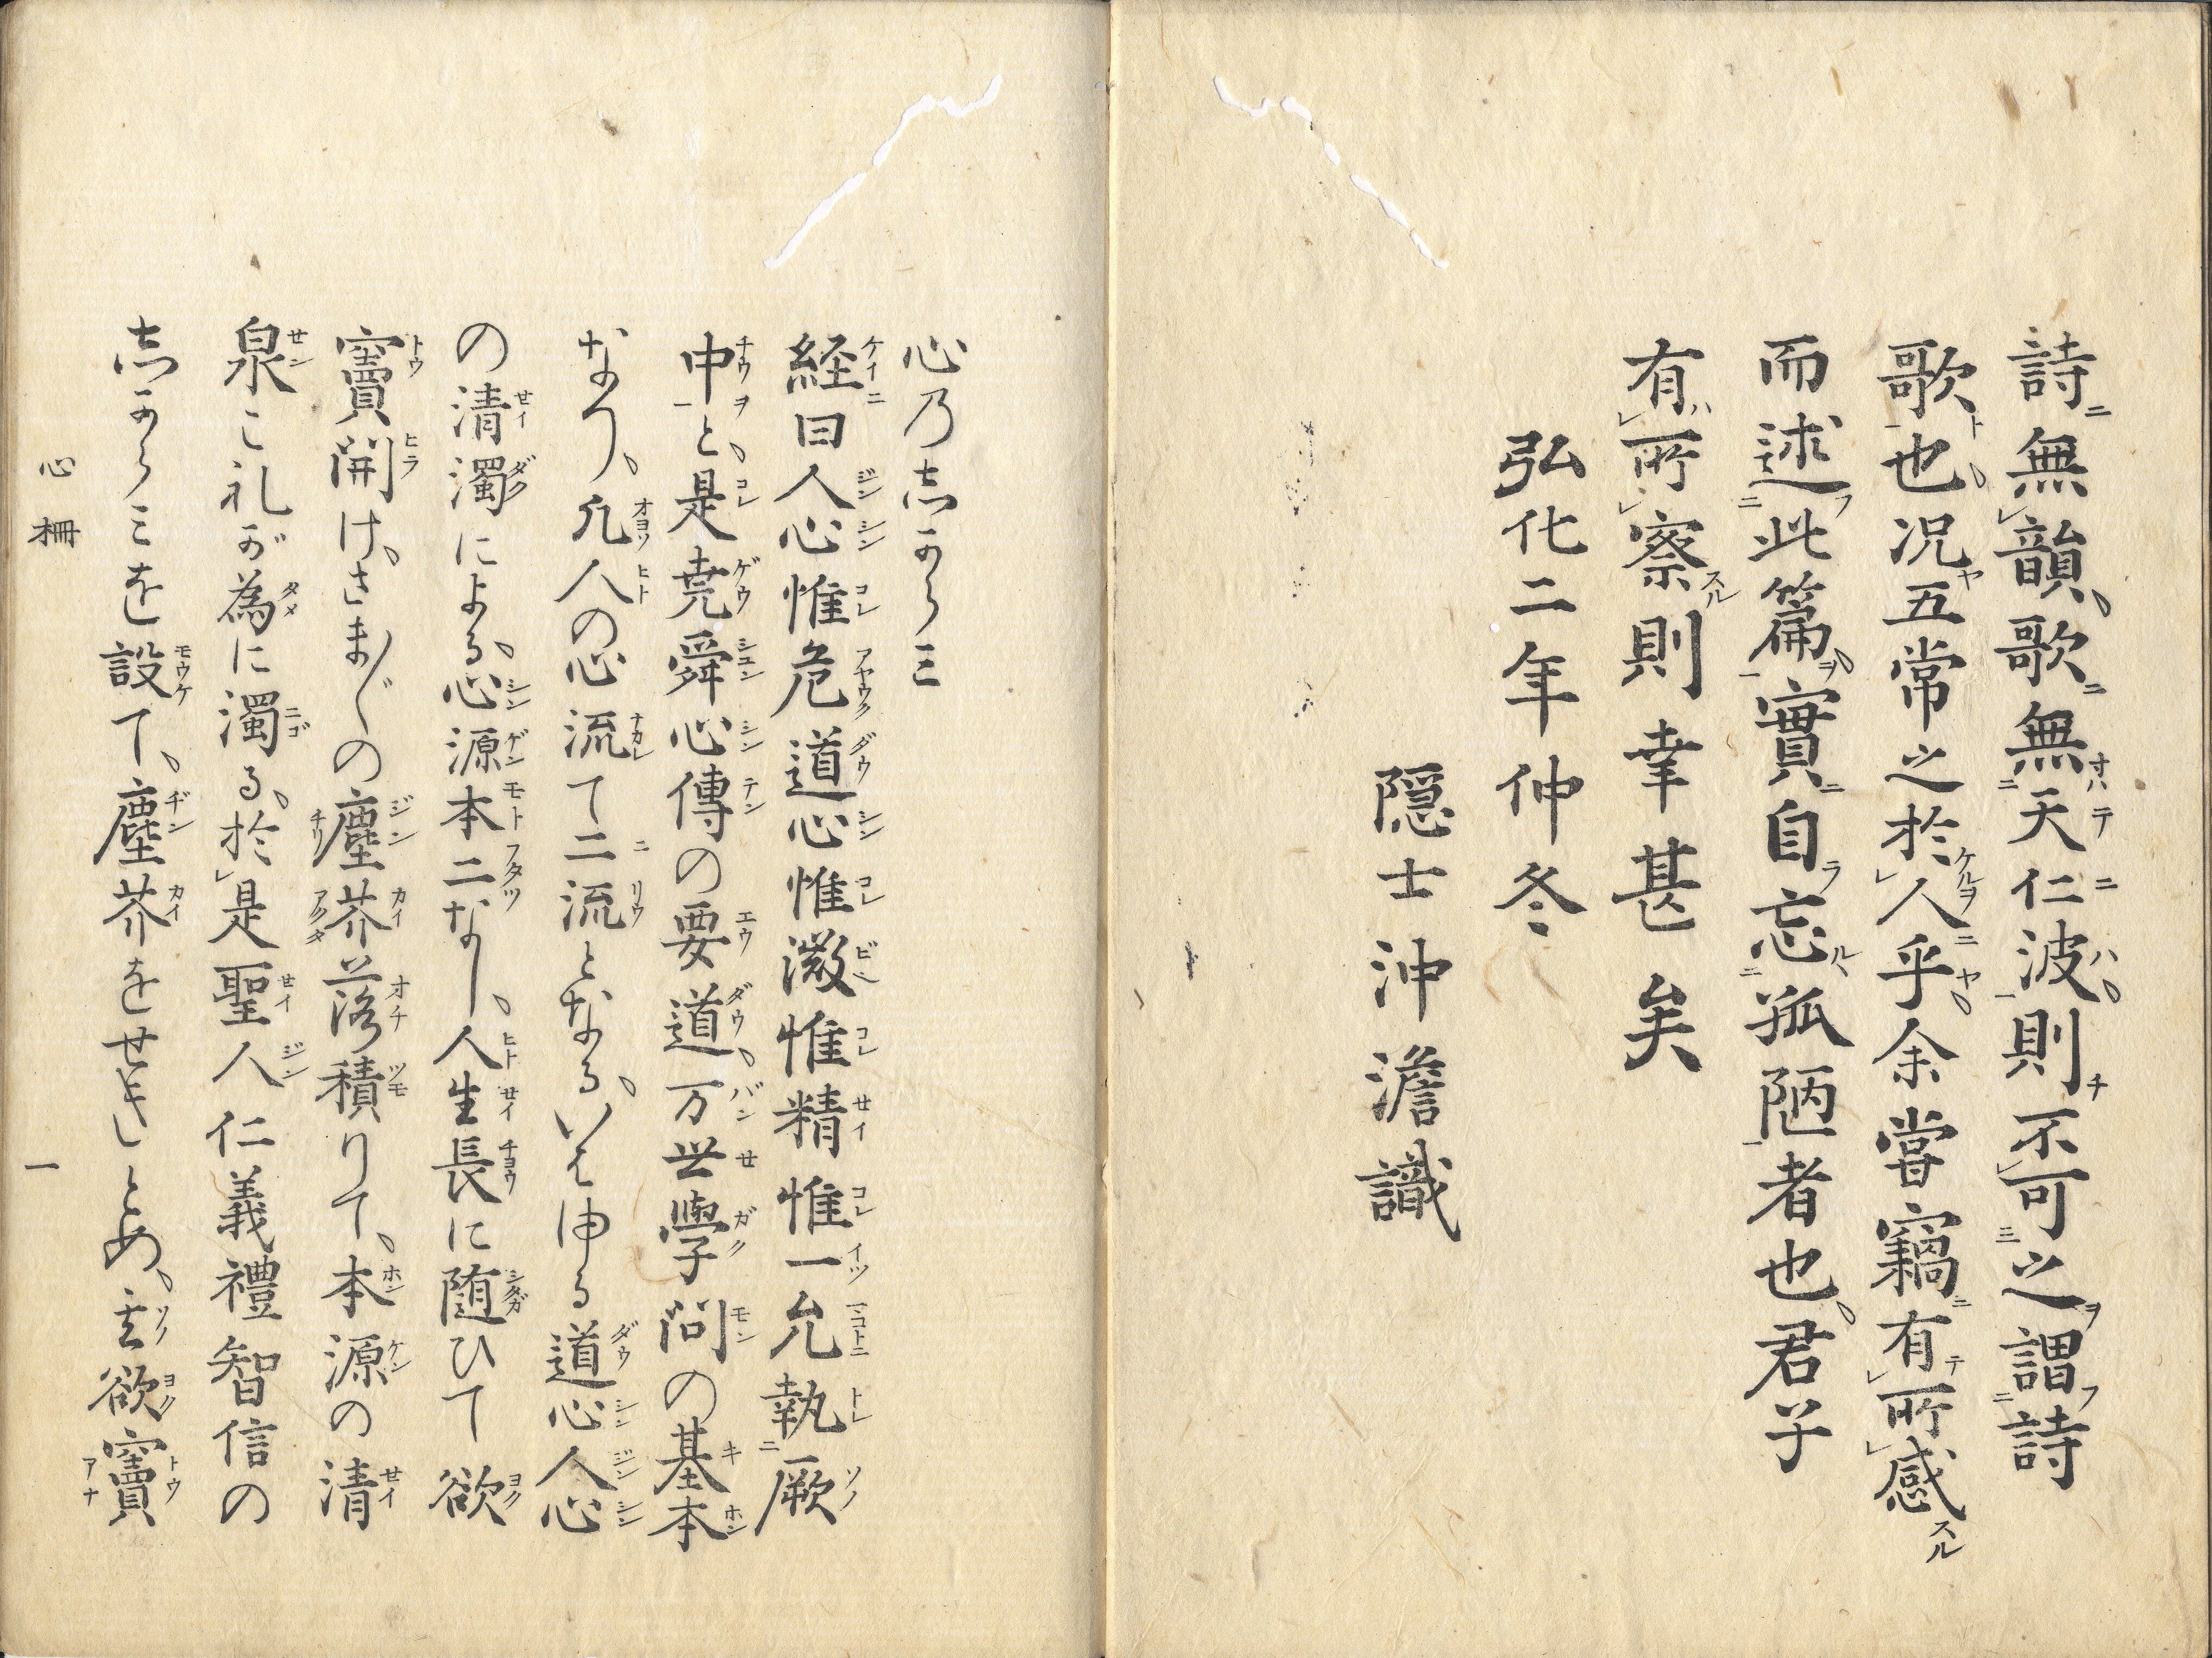 詩無韻歌無天仁波則不可之謂詩
歌也況五常之於人乎余嘗竊有所感
而述此篇實自忘孤陋者也君子
有所察則幸甚矣
弘化二年仲冬
隠士沖澹識
心乃志可らミ
経曰人心惟危道心惟微惟精惟一允執厥
中と是堯舜心傳の要道万世學問の基本
なり凡人の心流て二流となるいはゆる道心人心
の清濁による心源本二なし人生長に随ひて欲
竇開けさま〴〵の塵芥落積りて本源の清
泉これが為に濁る於是聖人仁義禮智信の
志可らミを設て塵芥をせきとめ其欲竇
心柵 一